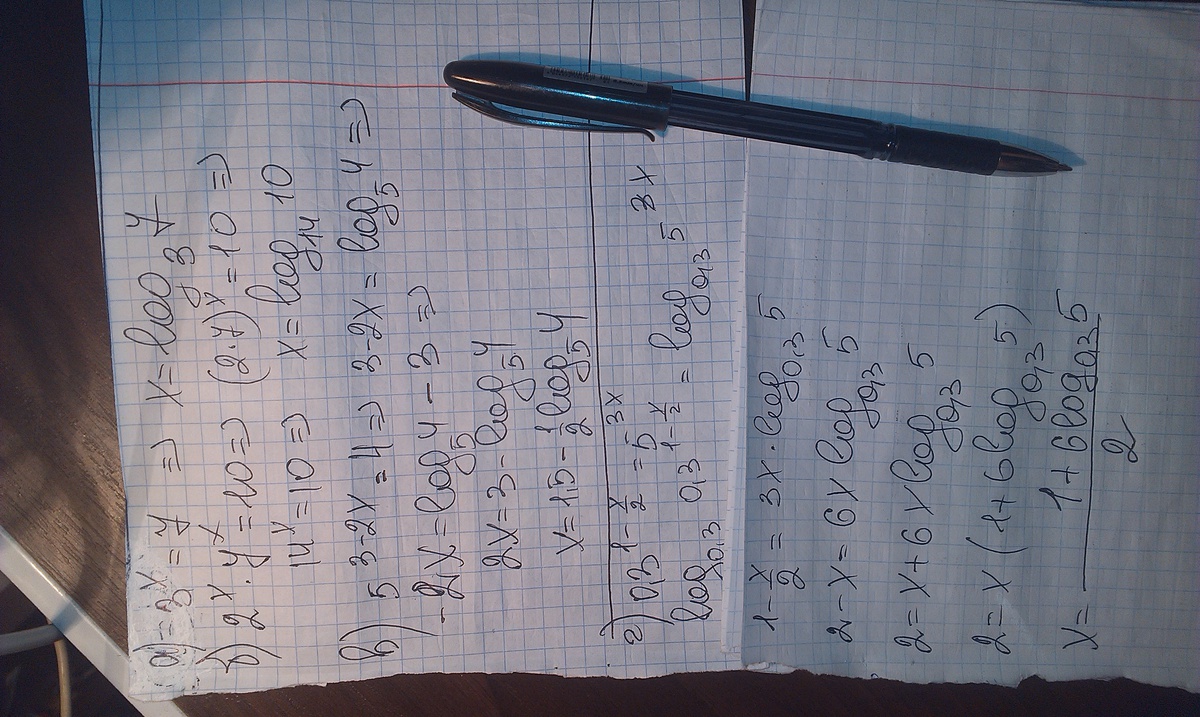 а) = 3^x = 7 => x = log_3 7
б) 2^x · 7^x = 10 => (2·7)^x = 10 =>
14^x = 10 => x = log_14 10
в) 5^(3-2x) = 4 => 3-2x = log_5 4 =>
-2x = log_5 4 - 3 =>
2x = 3 - log_5 4
x = 1,5 - 1/2 log_5 4
г) 0,3^(1-x/2) = 5^(3x)
log_0,3 0,3^(1-x/2) = log_0,3 5^(3x)
1 - x/2 = 3x · log_0,3 5
2 - x = 6x log_0,3 5
2 = x + 6x log_0,3 5
2 = x (1 + 6 log_0,3 5)
x = (1 + 6 log_0,3 5)/2